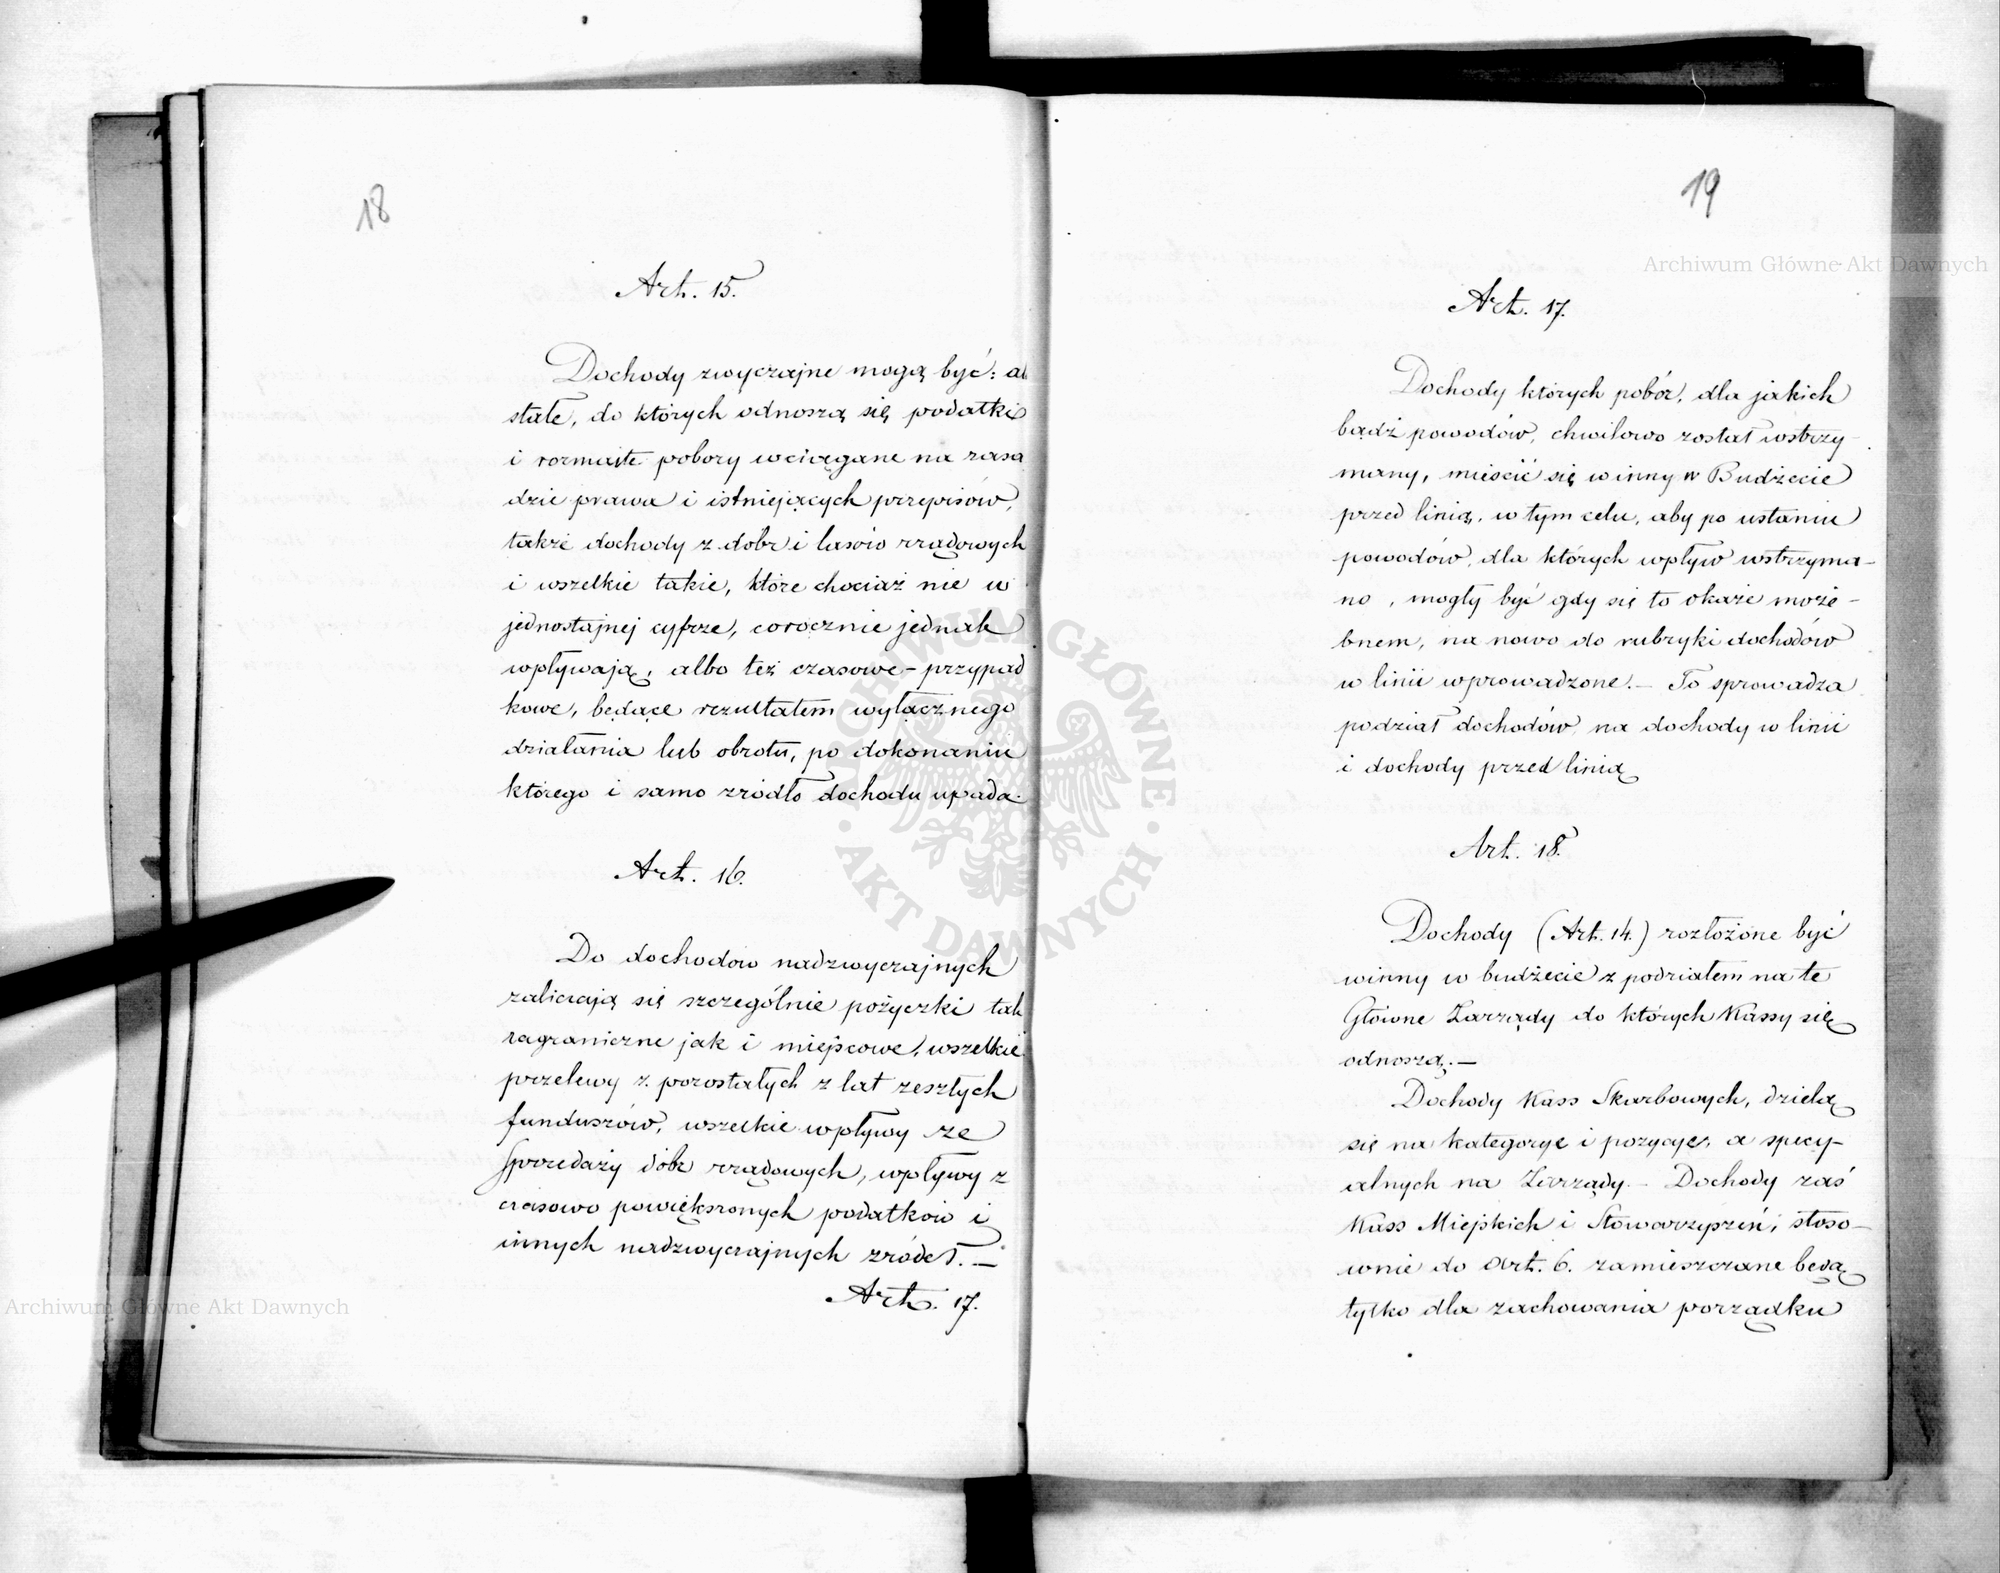 18
Art. 15.
Dochody zwyczajne mogą być: al
stałe, do których odnoszą się podatki
i rozmaite pobory wciągane na zasa
dzie prawa i istniejących przepisów,
także dochody z dóbr i lasów rządowych
i wszelkie takie, które chociaż nie w
jednostajnej cyfrze, corocznie jednak
wpływają, albo też czasowe - przypad
kowe, będące rezultatem wyłącznego
działania lub obrotu, po dokonaniu
którego i samo zródło dochodu upada.
Art. 16.
Do dochodów nadzwyczajnych
zaliczają się szczególnie pożyczki tak
zagraniczne jak i miejscowe, wszelkie
przelewy z pozostałych z lat zeszłych
funduszów, wszelkie wpływy ze
sprzedaży dóbr rządowych, wpływy z
czasowo powiększonych podatków i
innych nadzwyczajnych zródeł. —
Art. 17.
19
Art. 17.
Dochody których pobór, dla jakich
bądź powodów, chwilowo został wstrzy-
many, mieścić się winny w Budżecie
przed linią, w tym celu, aby po ustaniu
powodów, dla których wpływ wstrzyma-
no, mogły być gdy się to okaże może-
bnem, na nowo do rubryki dochodów
w linii wprowadzone. — To sprowadza
podział dochodów na dochody w linii
i dochody przed linią
Art. 18.
Dochody (Art. 14.) rozłożone być
winny w budżecie z podziałem na te
Główne Zarządy do których Kassy się
odnoszą. —
Dochody Kass Skarbowych, dzielą
się na kategorye i pozycye, a specy-
alnych na Zarządy. — Dochody zaś
Kass Miejskich i Stowarzyszeń, stoso-
wnie do Art. 6. zamieszczane będą
tylko dla zachowania porządku
Archiwum Główne Akt Dawnych
Archiwum Główne Akt Dawnych
ARCHIWUM GŁÓWNE
· AKT DAWNYCH ·